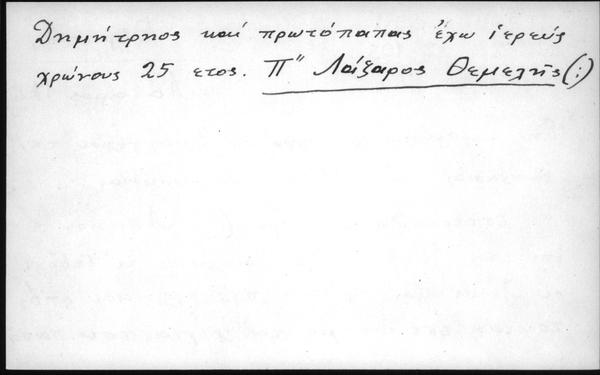 Δημήτρηος καί πρωτόπαπας ἔχω ἱερεύς
χρώνους 25 ετος. Π" Λάζαρος Θεμελῆς (;)